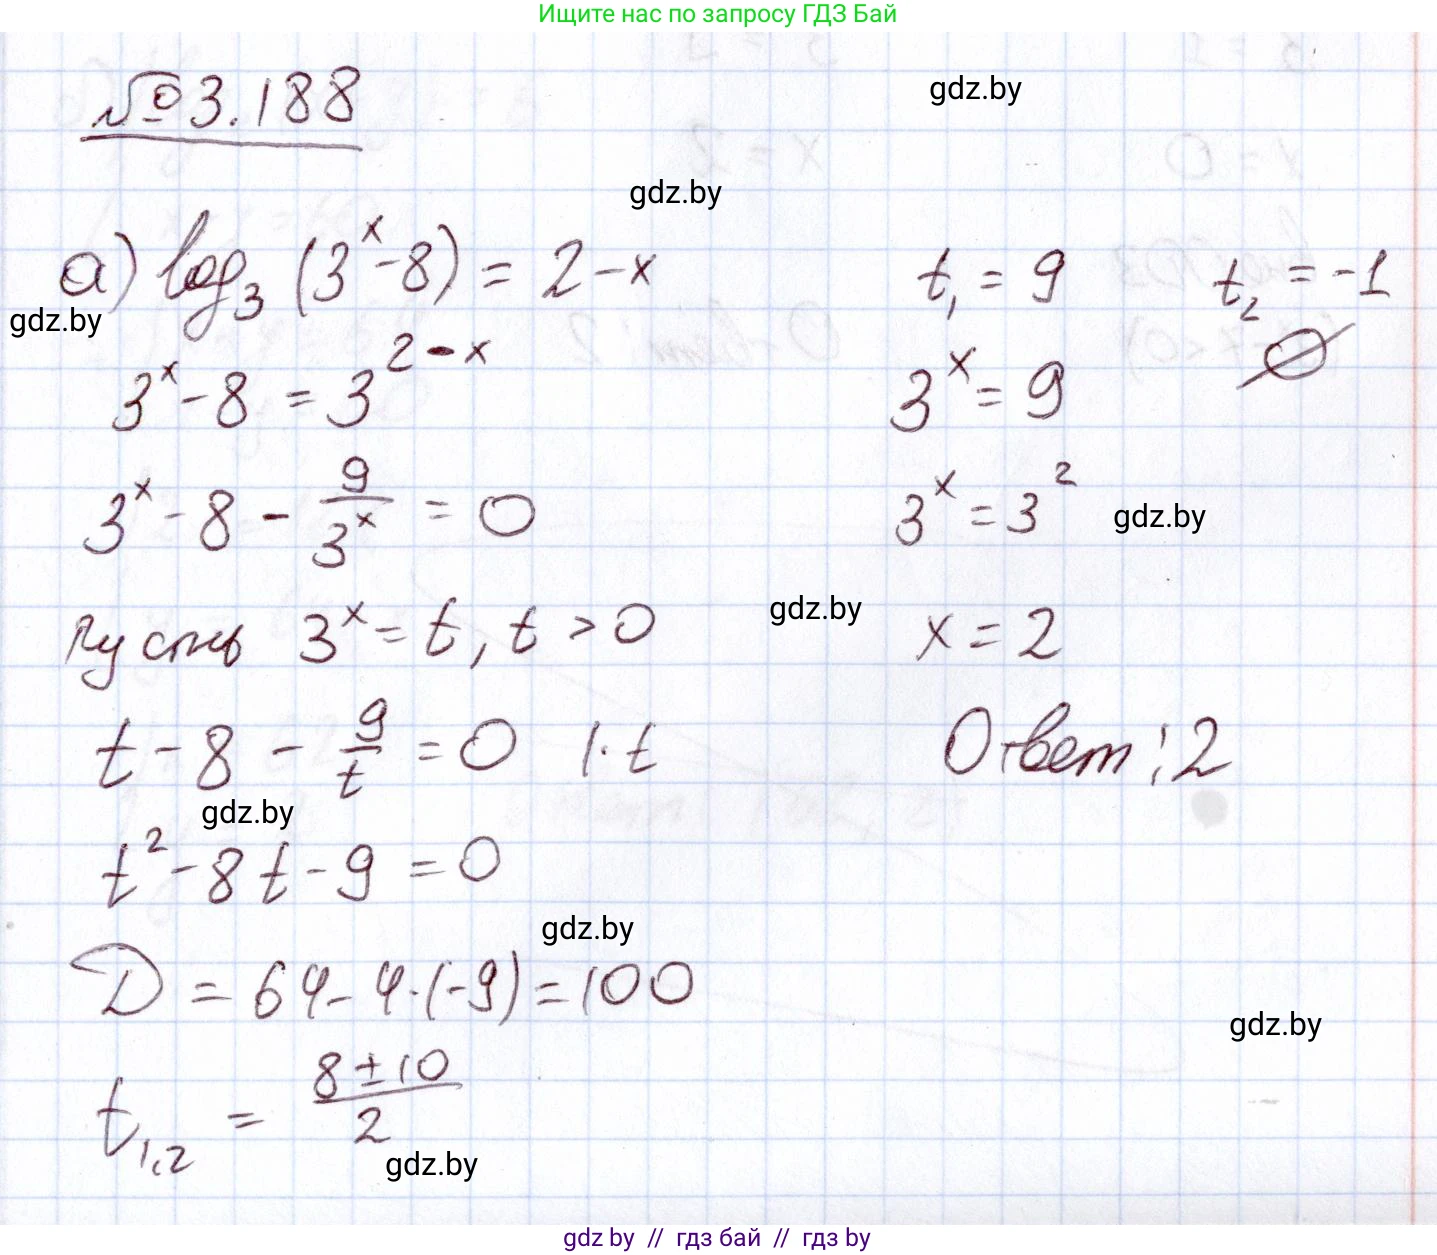 Ищите нас по запросу ГДЗ Бай
№3.188
gdz.by
gdz.by
а) log₃ (3ˣ-8) = 2-x
gdz.by
3ˣ-8 = 3²⁻ˣ
3ˣ-8 - 9/3ˣ = 0
Пусть 3ˣ = t, t > 0
t - 8 - 9/t = 0 |·t
gdz.by
t² - 8t - 9 = 0
gdz.by
D = 64 - 4·(-9) = 100
t₁,₂ = (8±10)/2
gdz.by
t₁ = 9 t₂ = -1
∅
3ˣ = 9
3ˣ = 3²
gdz.by
gdz.by
x = 2
Ответ: 2
gdz.by
gdz.by // гдз бай // гдз by